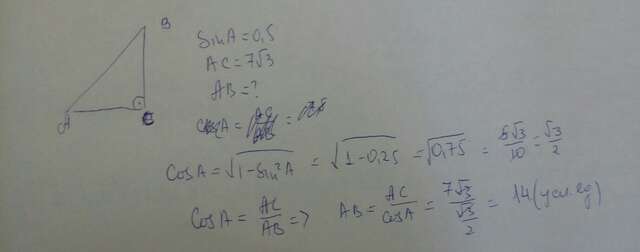 B
A
C
sinA=0,5
AC=7√3
AB=?
CosA=√(1-sin²A) = √(1-0,25) = √0,75 = 5√3/10 = √3/2
CosA = AC/AB => AB = AC/cosA = 7√3/(√3/2) = 14(усл.ед)